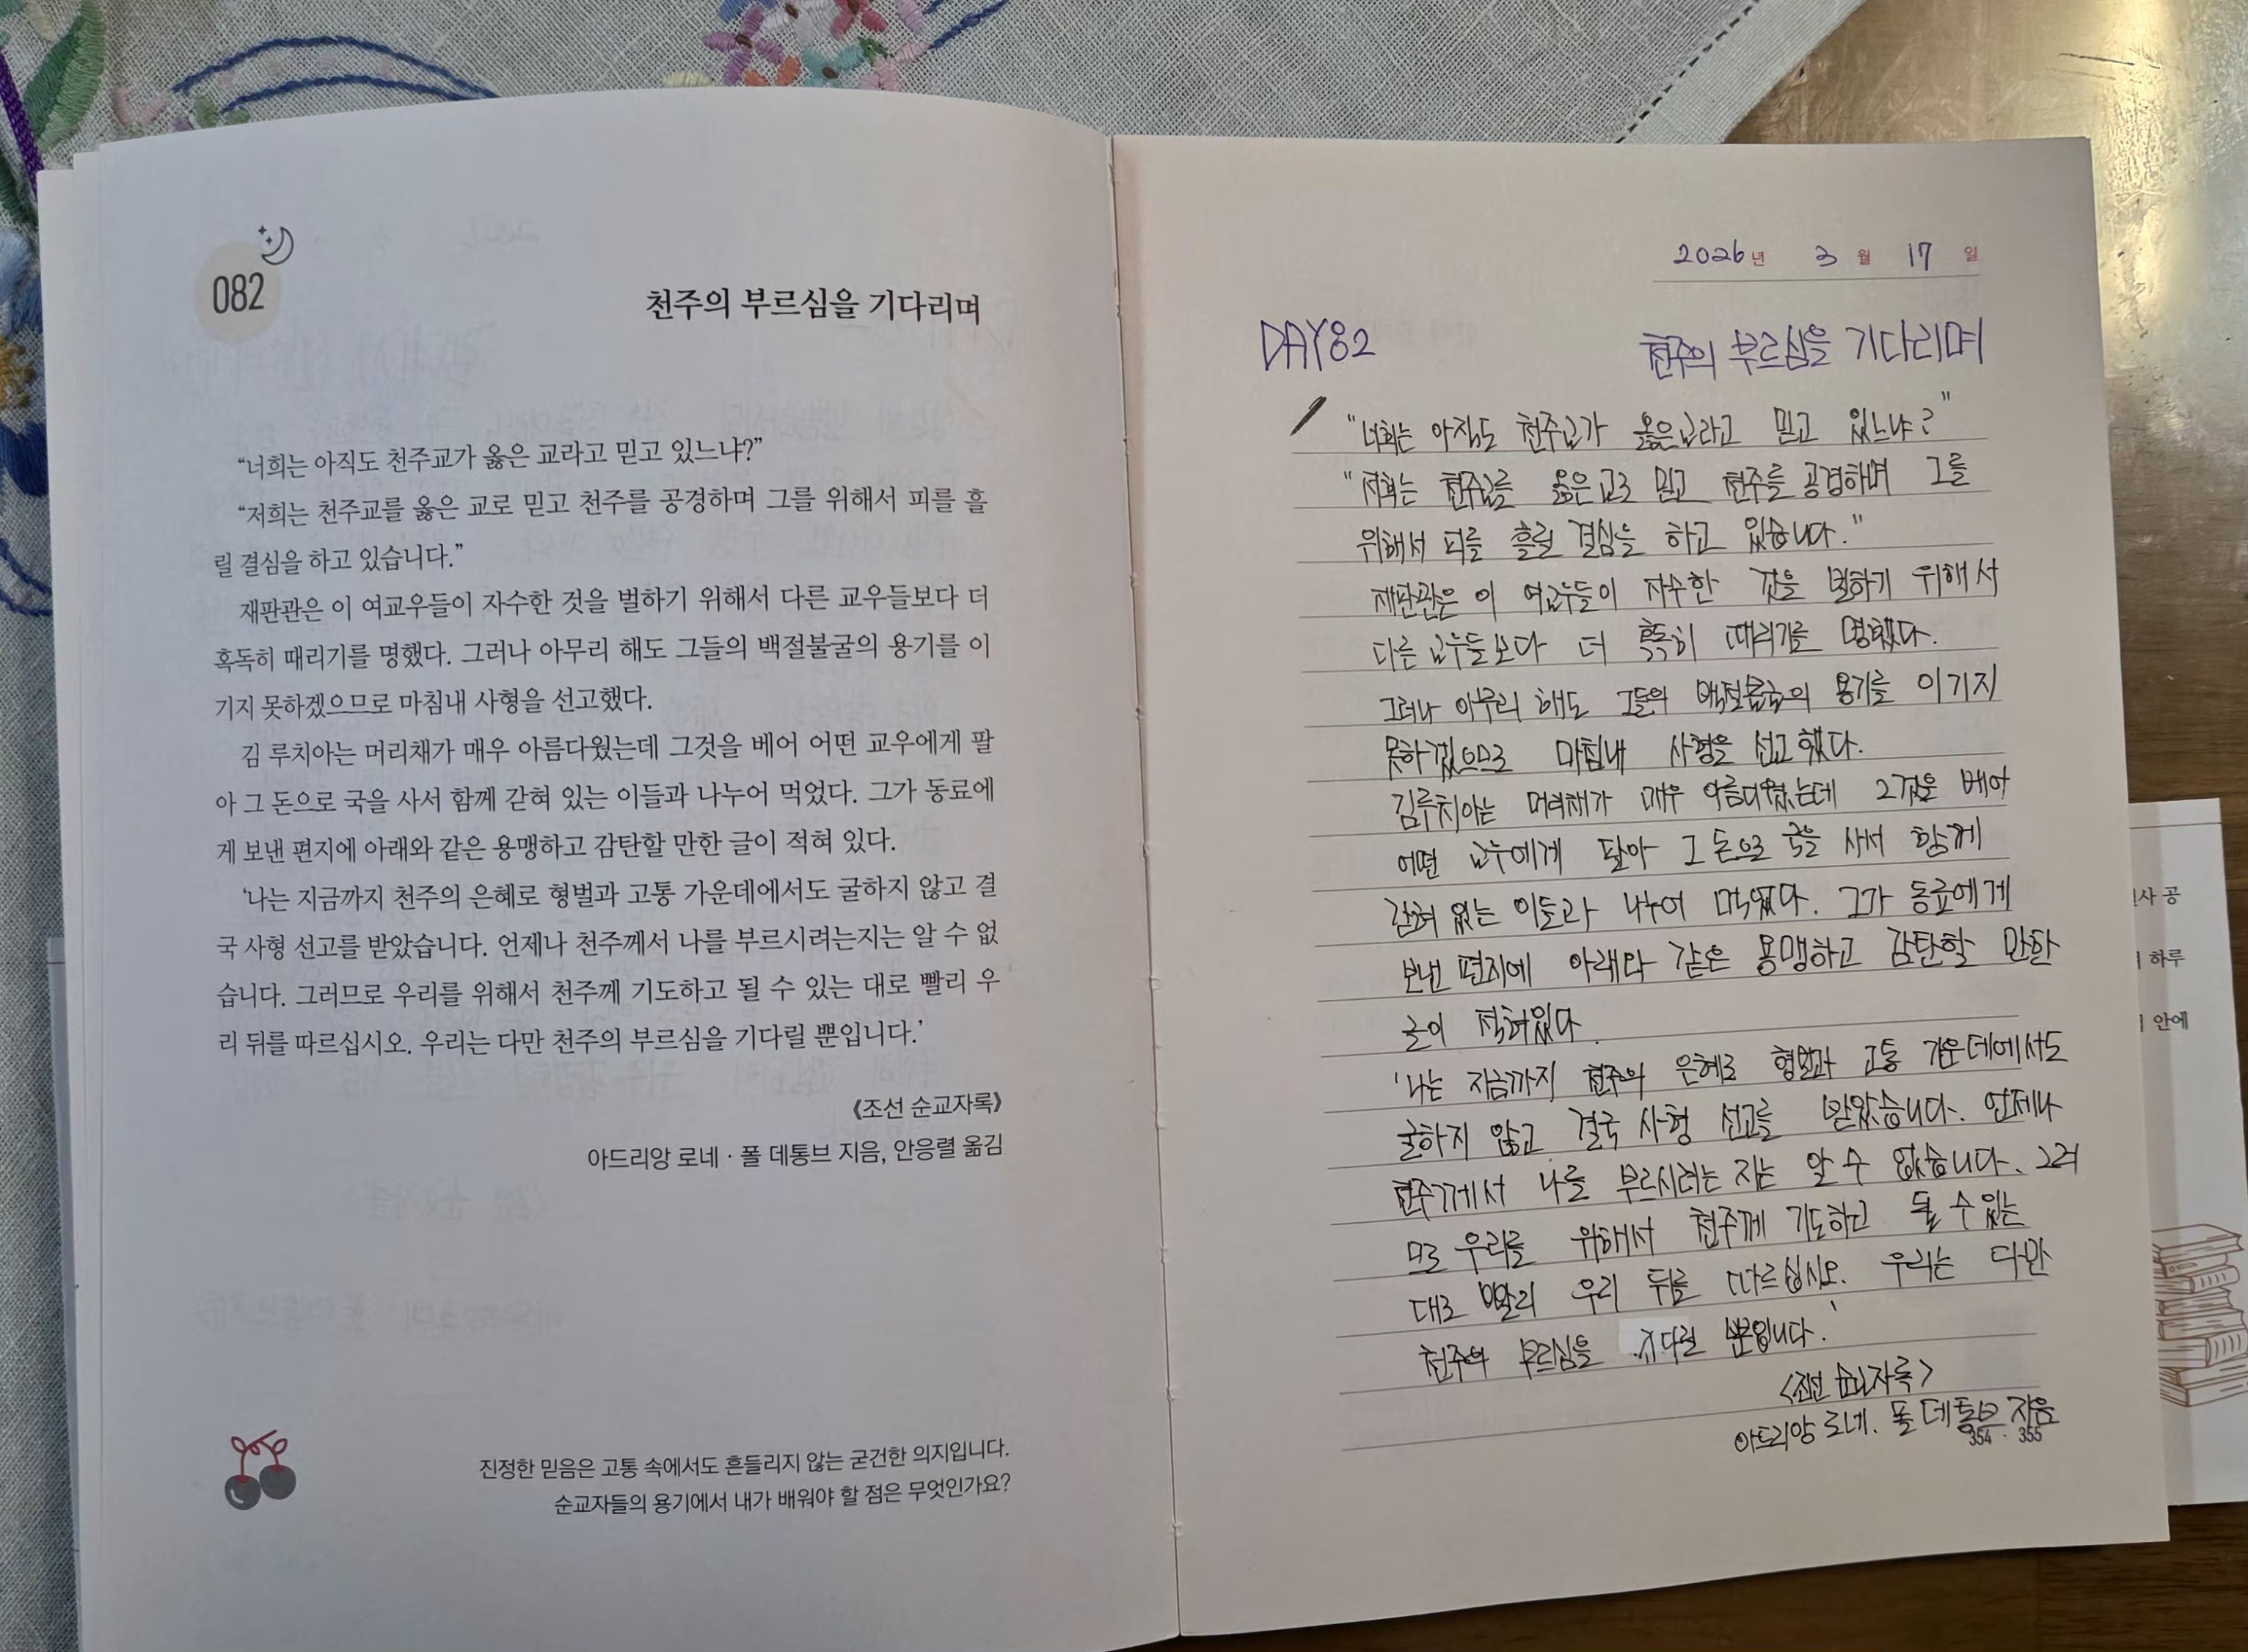 082
천주의 부르심을 기다리며
“너희는 아직도 천주교가 옳은 교라고 믿고 있느냐?”
“저희는 천주교를 옳은 교로 믿고 천주를 공경하며 그를 위해서 피를 흘
릴 결심을 하고 있습니다.”
재판관은 이 여교우들이 자수한 것을 벌하기 위해서 다른 교우들보다 더
혹독히 때리기를 명했다. 그러나 아무리 해도 그들의 백절불굴의 용기를 이
기지 못하겠으므로 마침내 사형을 선고했다.
김 루치아는 머리채가 매우 아름다웠는데 그것을 베어 어떤 교우에게 팔
아 그 돈으로 국을 사서 함께 갇혀 있는 이들과 나누어 먹었다. 그가 동료에
게 보낸 편지에 아래와 같은 용맹하고 감탄할 만한 글이 적혀 있다.
‘나는 지금까지 천주의 은혜로 형벌과 고통 가운데에서도 굴하지 않고 결
국 사형 선고를 받았습니다. 언제나 천주께서 나를 부르시려는지는 알 수 없
습니다. 그러므로 우리를 위해서 천주께 기도하고 될 수 있는 대로 빨리 우
리 뒤를 따르십시오. 우리는 다만 천주의 부르심을 기다릴 뿐입니다.’
《조선 순교자록》
아드리앙 로네 · 폴 데통브 지음, 안응렬 옮김
진정한 믿음은 고통 속에서도 흔들리지 않는 굳건한 의지입니다.
순교자들의 용기에서 내가 배워야 할 점은 무엇인가요?
2026년 3월 17일
DAY82
천주의 부르심을 기다리며
"너희는 아직도 천주교가 옳은교라고 믿고 있느냐?"
"저희는 천주교를 옳은교로 믿고 천주를 공경하며 그를
위해서 피를 흘릴 결심을 하고 있습니다."
재판관은 이 여교우들이 자수한 것을 벌하기 위해서
다른 교우들보다 더 혹독히 때리기를 명했다.
그러나 아무리 해도 그들의 백절불굴의 용기를 이기지
못하겠으므로 마침내 사형을 선고했다.
김루치아는 머리채가 매우 아름다웠는데 그것을 베어
어떤 교우에게 팔아 그 돈으로 국을 사서 함께
갇혀 있는 이들과 나누어 먹었다. 그가 동료에게
보낸 편지에 아래와 같은 용맹하고 감탄할 만한
글이 적혀있다.
'나는 지금까지 천주의 은혜로 형벌과 고통 가운데에서도
굴하지 않고 결국 사형 선고를 받았습니다. 언제나
천주께서 나를 부르시려는 지는 알 수 없습니다. 그러
므로 우리를 위해서 천주께 기도하고 될 수 있는
대로 빨리 우리 뒤를 따르십시오. 우리는 다만
천주의 부르심을 기다릴 뿐입니다.'
<조선 순교자록>
아드리앙 로네. 폴 데통브 지음
354 · 355
사 공
하루
안에